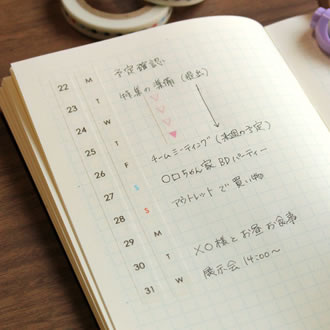 22 M 予定確認
23 T 特集の準備(提出)
24 W
25 T
26 F チームミーティング(来週の予定)
27 S 〇〇ちゃん家 BDパーティー
28 S アウトレットで買い物
29 M
30 T ×〇様とお昼お食事
31 W 展示会 14:00〜